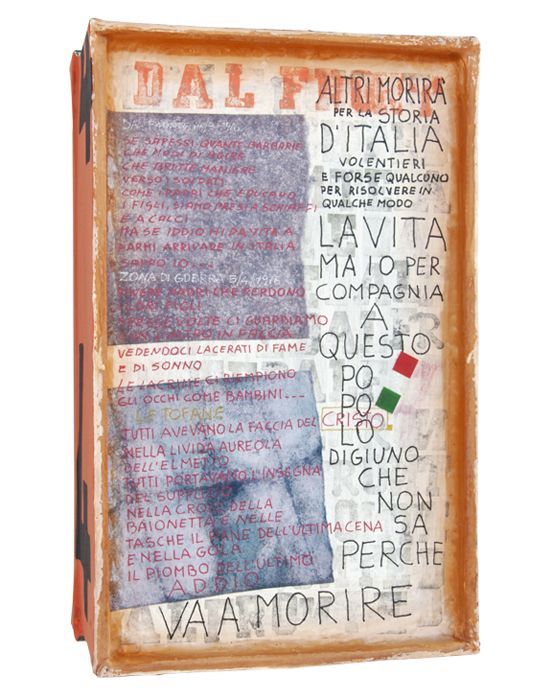 DAL F
DAL
SE SAPESSI QUANTE BARBARIE
CHE MODI DI AGIRE
CHE BRUTTE MANIERE
VERSO I SOLDATI
COME I PADRI CHE EDUCANO
I FIGLI, SIAMO PRESI A SCHIAFFI
E A CALCI
MA SE IDDIO MI DA VITA A
FARMI ARRIVARE IN ITALIA
SAPRO IO...
ZONA DI GUERRA
POVERI PADRI CHE PERDONO
CARI FIGLI
VOLTE CI GUARDIAMO
IN FACCIA
VEDENDOCI LACERATI DI FAME
E DI SONNO
LE LACRIME CI RIEMPIONO
GLI OCCHI COME BAMBINI...
LE TOFANE
TUTTI AVEVANO LA FACCIA DEL CRISTO
NELLA LIVIDA AUREOLA
DELL'ELMETTO
TUTTI PORTAVANO L'INSEGNA
DEL SUPPLIZIO
NELLA CROCE DELLA
BAIONETTA E NELLE
TASCHE IL PANE DELL'ULTIMA CENA
E NELLA GOLA
IL PIOMBO DELL'ULTIMO
ADDIO
ALTRI MORIRÀ
PER LA STORIA
D'ITALIA
VOLENTIERI
E FORSE QUALCUNO
PER RISOLVERE IN
QUALCHE MODO
LA VITA
MA IO PER
COMPAGNIA
A
QUESTO
PO
PO
LO
DIGIUNO
CHE
NON
SA
PERCHE
VA A MORIRE